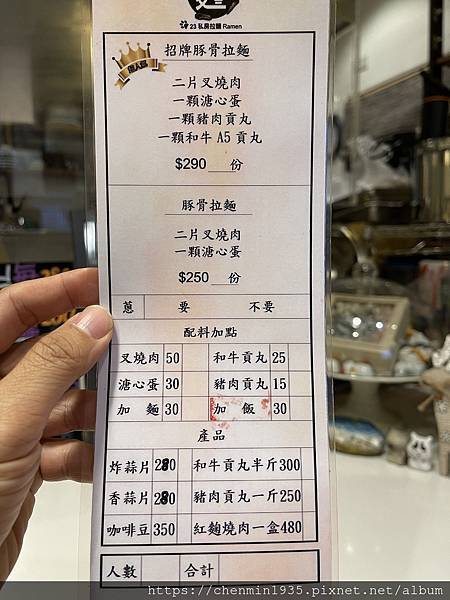 23 私房拉麵 Ramen
達人部
招牌豚骨拉麵
二片叉燒肉
一顆溏心蛋
一顆豬肉貢丸
一顆和牛 A5 貢丸
$290 __ 份
豚骨拉麵
二片叉燒肉
一顆溏心蛋
$250 __ 份
蔥 要 不要
配料加點
叉燒肉 50 和牛貢丸 25
溏心蛋 30 豬肉貢丸 15
加麵 30 加飯 30
產品
炸蒜片 280 和牛貢丸半斤 300
香蒜片 280 豬肉貢丸一斤 250
咖啡豆 350 紅麴燒肉一盒 480
人數 合計
https://chenmin1935.pixnet.net/album